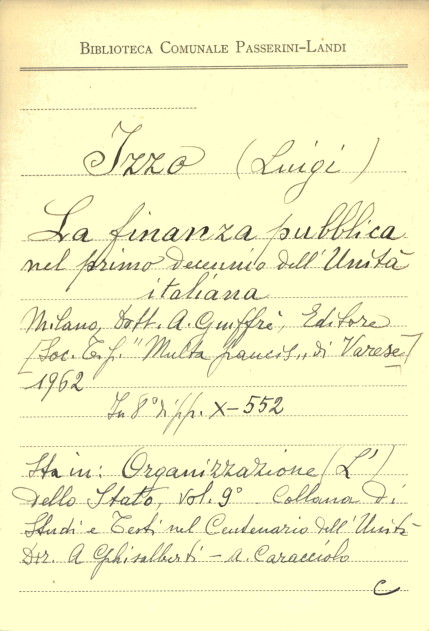 BIBLIOTECA COMUNALE PASSERINI-LANDI
Izzo (Luigi)
La finanza pubblica
nel primo decennio dell'Unità
italiana
Milano, Dott. A. Giuffrè, Editore
[Soc. Tip. "Multa paucis" di Varese]
1962
In 8° di pp. X-552
Sta in: Organizzazione (L')
dello Stato, vol. 9° Collana di
Studi e Testi nel Centenario dell'Unità
Dir. A Ghisalberti - A. Caracciolo
C